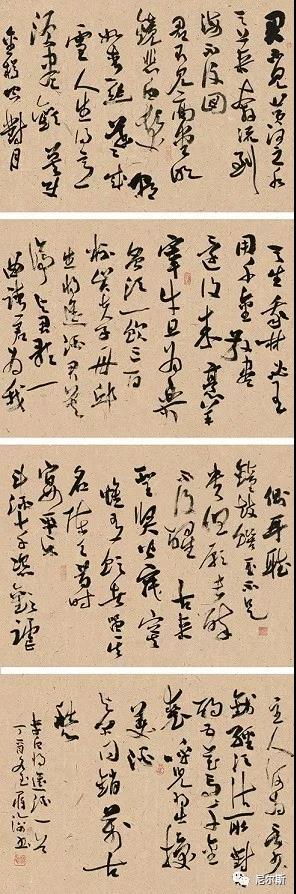 君不見黃河之水
天上來奔流到
海不復回
君不見高堂明
鏡悲白髮朝
如青絲暮成
雪人生得意
須盡歡莫使
金樽空對月
天生我材必有
用千金散盡
還復來烹羊
宰牛且為樂
會須一飲三百
杯岑夫子丹邱
生將進酒君莫
停與君歌一
曲請君為我
側耳聽
鐘鼓饌玉不足
貴但願長醉
不復醒古來
聖賢皆寂寞
惟有飲者留其
名陳王昔時
宴平樂
斗酒十千恣歡謔
主人何為言少
錢徑須沽取對
酌五花馬千金
裘呼兒將出換
美酒
與爾同銷萬古
愁
李白將進酒一首
丁酉冬
尼尔斯